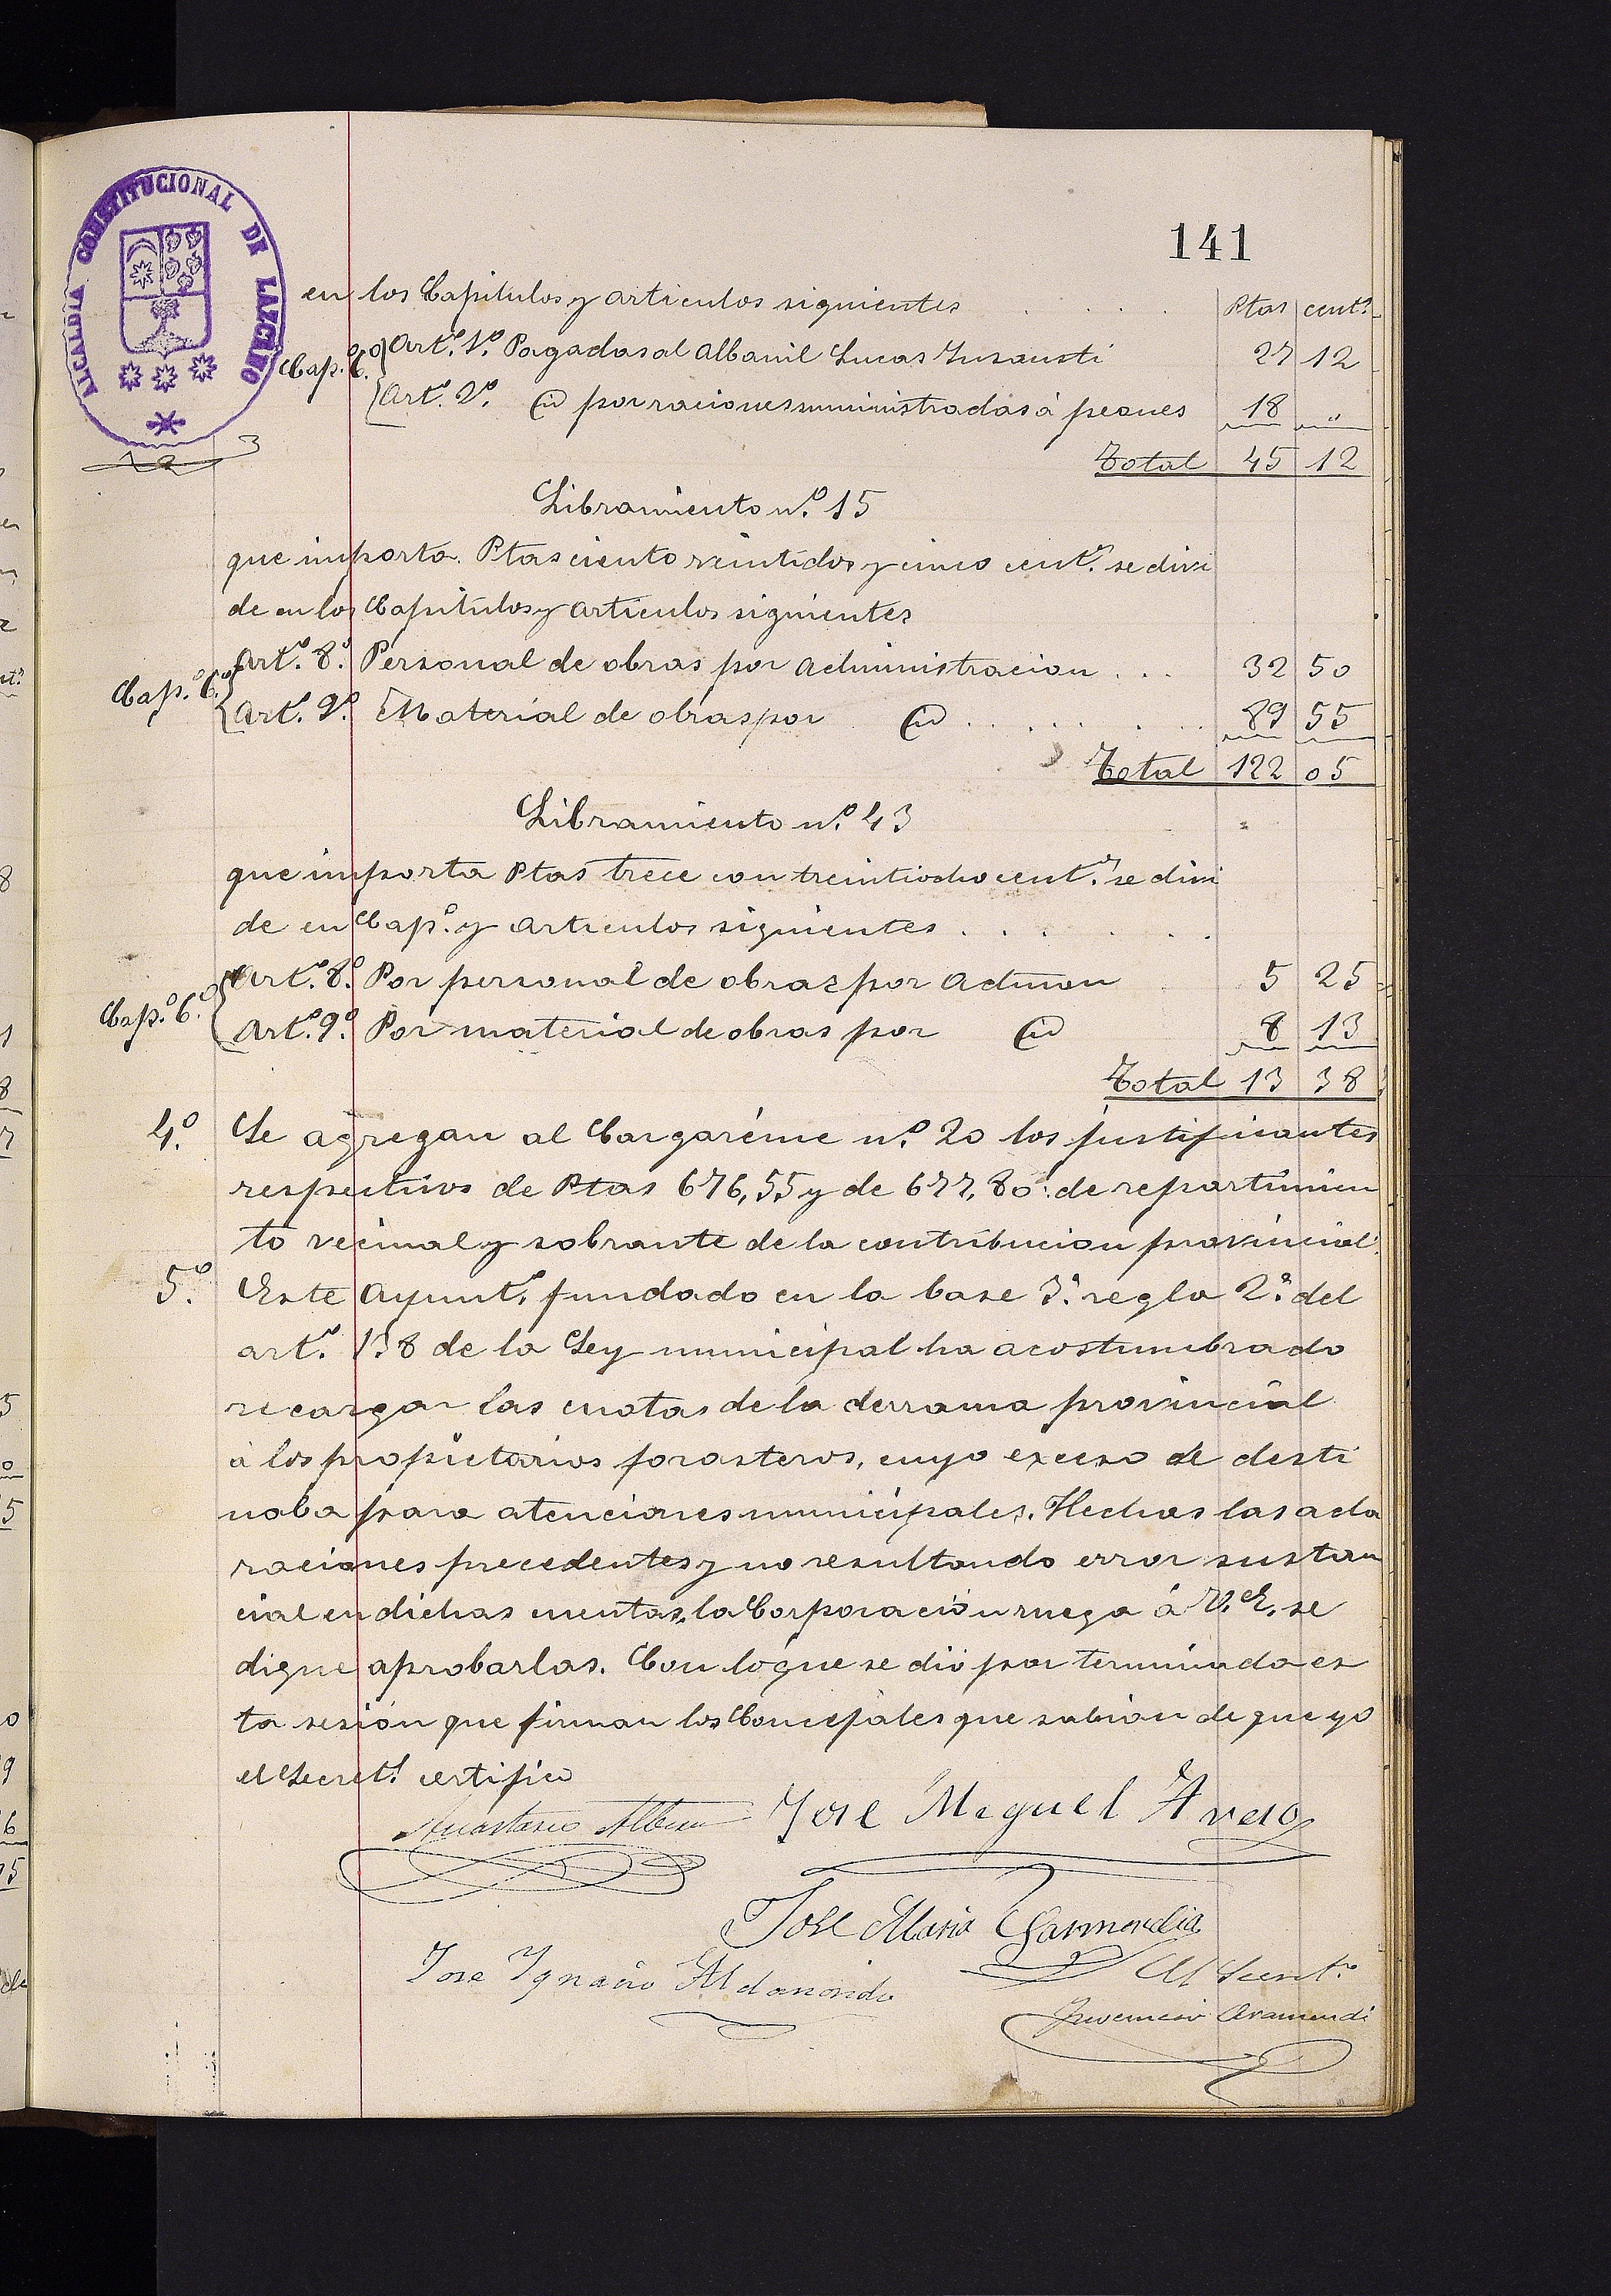 141
ALCALDIA CONSTITUCIONAL DE LAZCANO
en los Capitulos y articulos siguientes . . . . Ptas cents
Cap.º 6.º Art.º 1.º Pagadas al Albanil Lucas Insausti 27 12
Art.º 2.º id por raciones suministradas á peones 18 "
Total 45 12
Libramiento n.º 15
que importa Ptas ciento veintidos y cinco cent.s se divi
de en los Capitulos y articulos siguientes
Cap.º 6.º Art.º 8.º Personal de obras por administracion . . . 32 50
Art.º 9.º Material de obras por id . . . . . . 89 55
Total 122 05
Libramiento n.º 43
que importa Ptas trece con treintiocho cent.s se divi
de en Cap.º y articulos siguientes . . . . .
Cap.º 6.º Art.º 8.º Por personal de obras por admon 5 25
Art.º 9.º Por material de obras por id 8 13
Total 13 38
4.º Se agregan al Cargaréme n.º 20 los justificantes
respectivos de Ptas 676,55 y de 677,80 de repartimien
to vecinal y sobrante de la contribucion provincial.
5.º Este Ayunt.º fundado en la base 3.ª regla 2.ª del
art.º 138 de la Ley municipal ha acostumbrado
recargar las cuotas de la derrama provincial
á los propietarios forasteros, cuyo exceso se desti
naba para atenciones municipales. Hechas las acla
raciones precedentes y no resultando error sustan
cial en dichas cuentas, la Corporación ruega á V.E. se
digne aprobarlas. Con lo que se dió por terminada es
ta sesión que firman los Concejales que sabian de que yo
el Secret.º certifico
Anastasio Albisu Jose Miguel
Jose Maria Garmendia
Jose Ignacio Aldanondo El Secret.º
Juvencio Aramendi